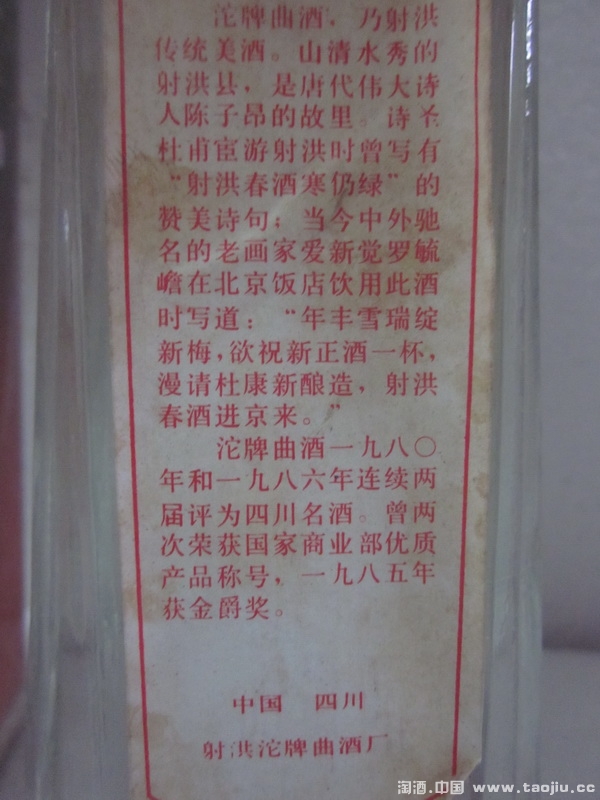 沱牌曲酒，乃射洪
传统美酒。山清水秀的
射洪县，是唐代伟大诗
人陈子昂的故里。诗圣
杜甫宦游射洪时曾写有
“射洪春酒寒仍绿”的
赞美诗句；当今中外驰
名的老画家爱新觉罗毓
嶦在北京饭店饮用此酒
时写道：“年丰雪瑞绽
新梅，欲祝新正酒一杯，
漫请杜康新酿造，射洪
春酒进京来。”
沱牌曲酒一九八〇
年和一九八六年连续两
届评为四川名酒。曾两
次荣获国家商业部优质
产品称号，一九八五年
获金爵奖。
中国 四川
射洪沱牌曲酒厂
淘酒.中国 www.taojiu.cc